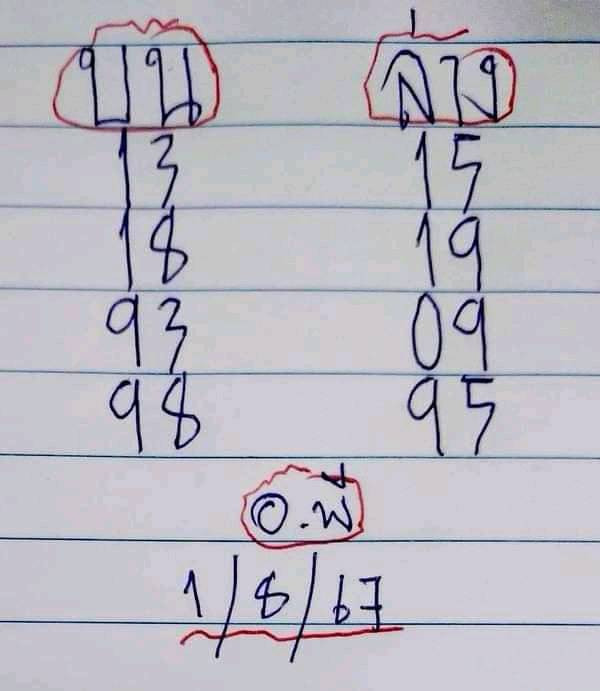 บน ล่าง
13 15
18 19
93 09
98 95
อ.พี่
1/8/67